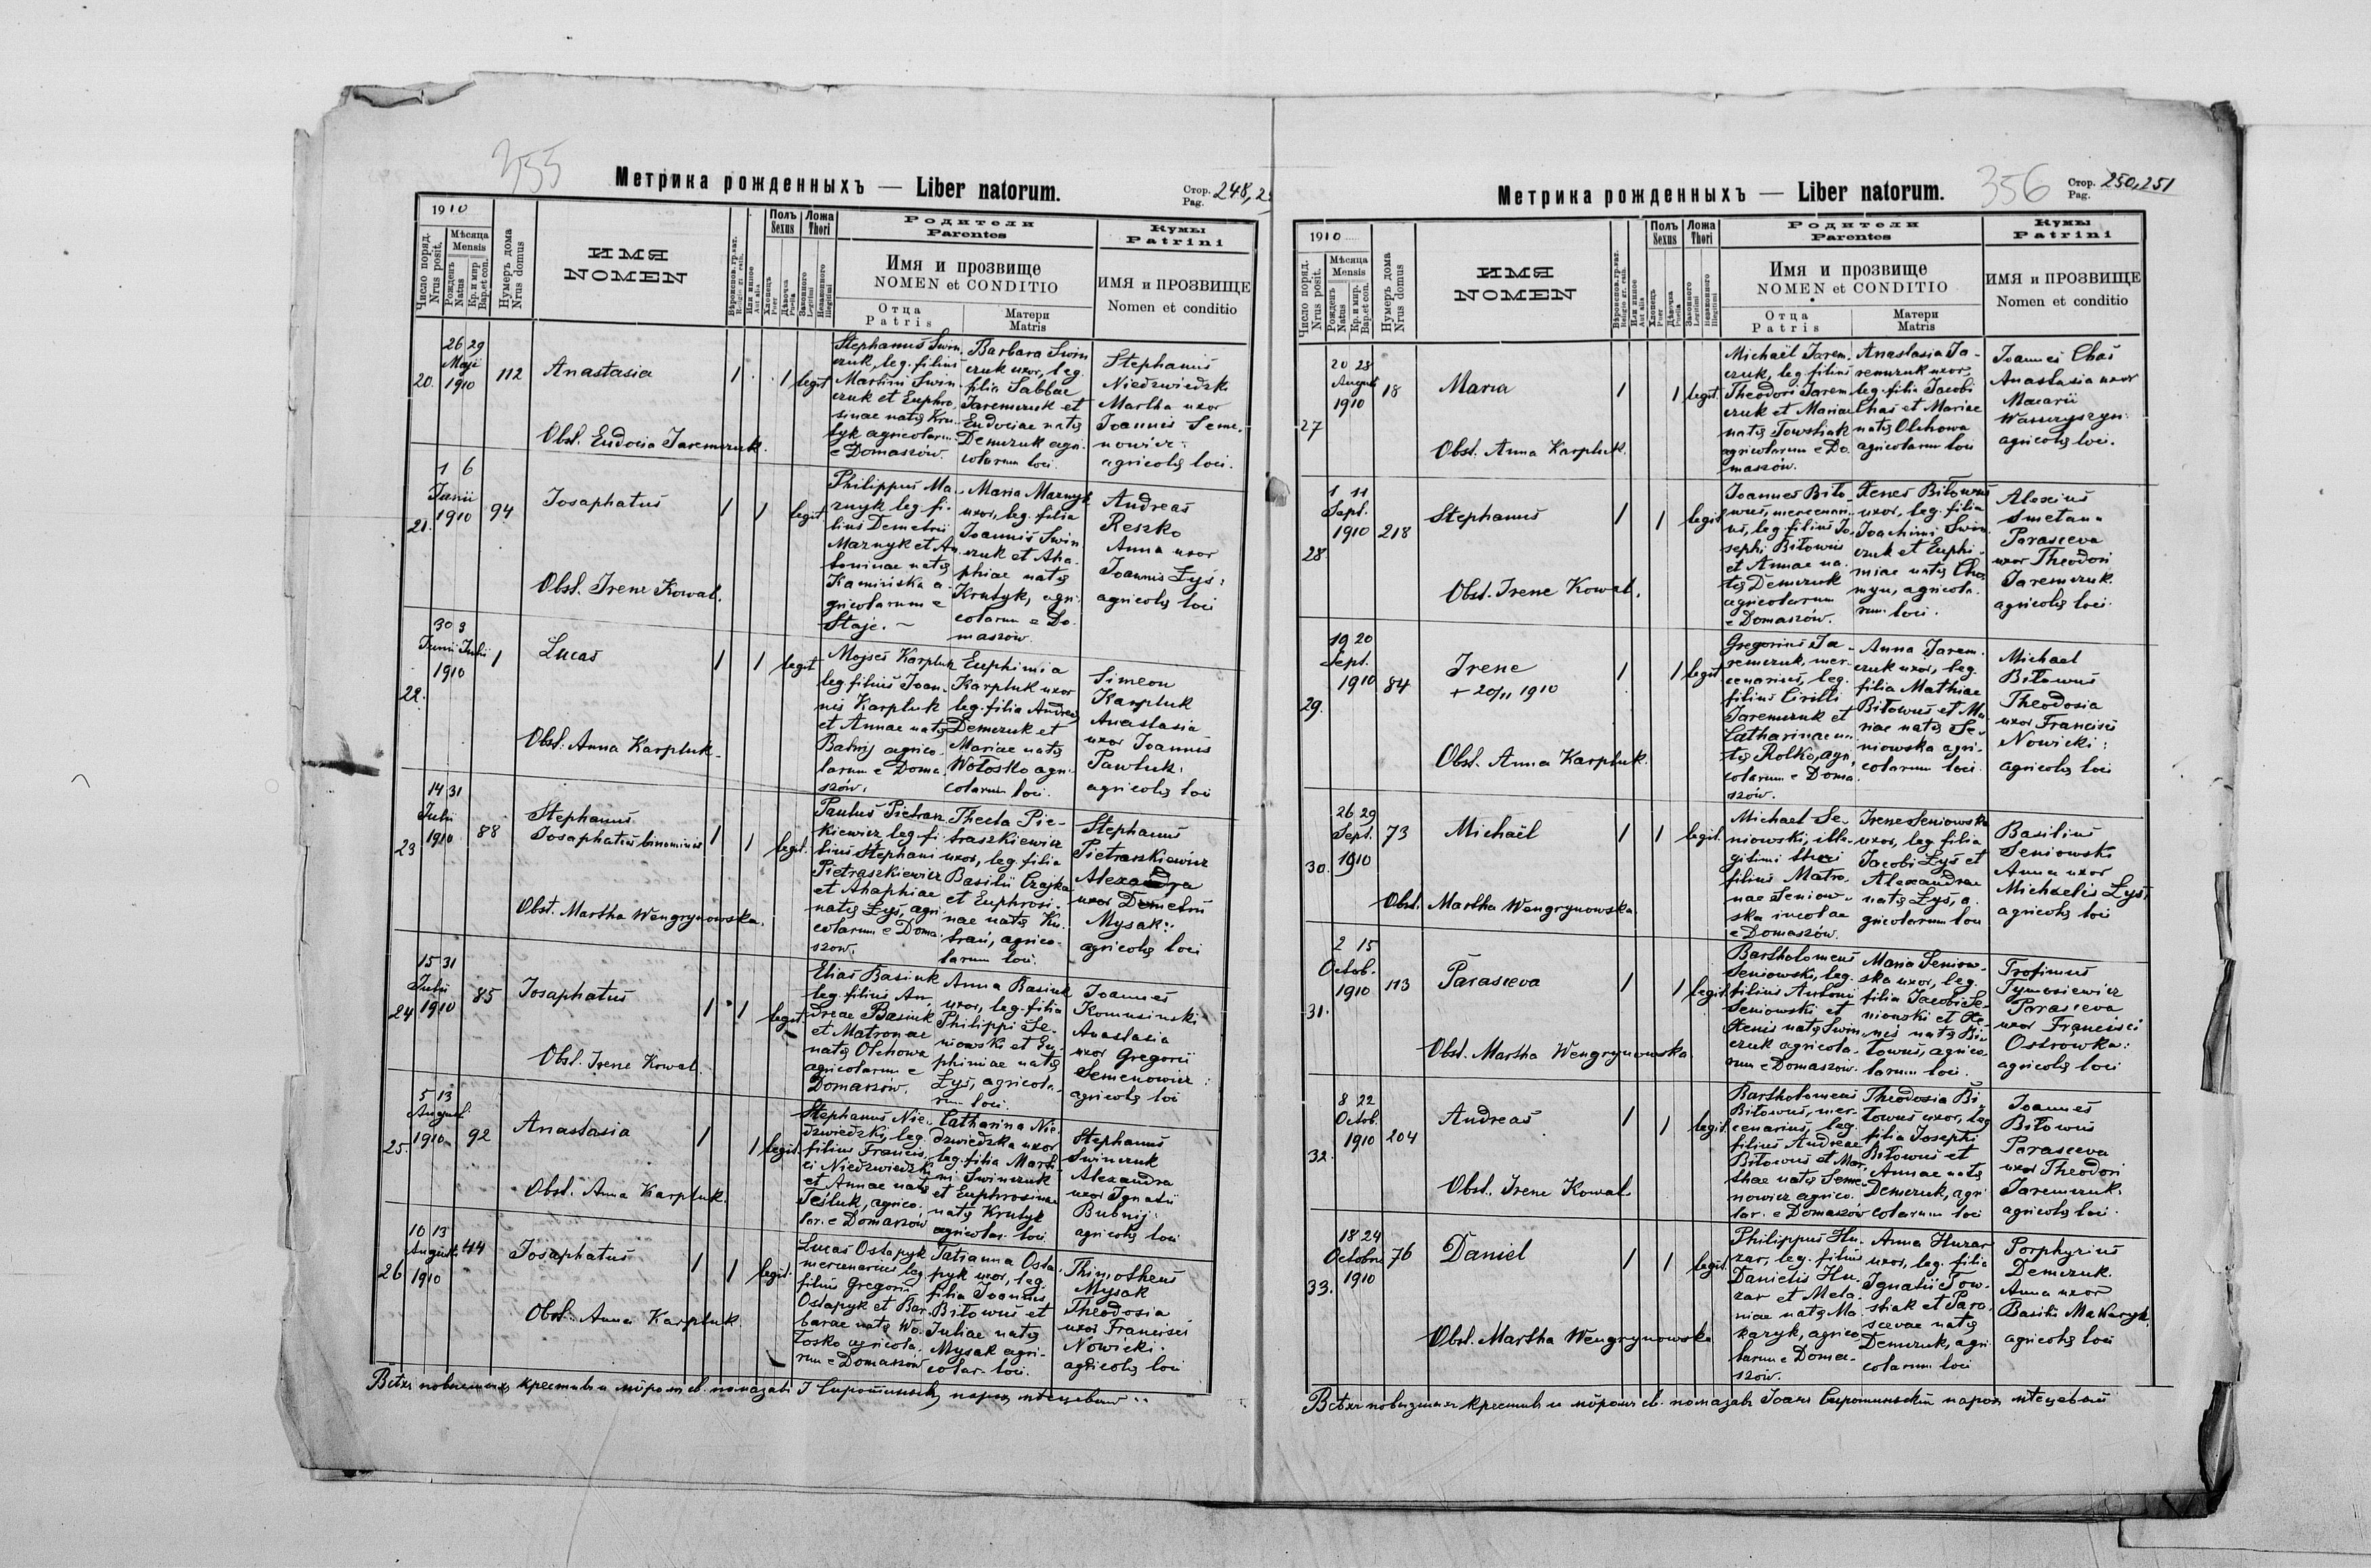 355
Метрика рожденныхъ — Liber natorum.
Стор. Pag. 248,
1910
Число поряд. Nrus posit.
Мѣсяца Mensis
Рожденъ Natus
Кр. и мѵр. Bap. et con.
Нумеръ дома Nrus domus
ИМЯ
NOMEN
Полъ Sexus
Хлопецъ Puer
Дѣвочка Puella
Ложа Thori
Законного Legitimi
Незаконного Illegitimi
Родители
Parentes
Имя и прозвище
NOMEN et CONDITIO
Отца
Patris
Матери
Matris
Кумы
Patrini
ИМЯ и ПРОЗВИЩЕ
Nomen et conditio
20.
26 29
Maji
1910
112
Anastasia
1 1 legit
Obst. Eudocia Jaremczuk.
Stephanus Swin-
czuk, leg. filius
Martini Swin-
czuk et Euphro-
sinae natę Kru-
tyk agricolarum
e Domaszów.
Barbara Swin
czuk uxor, leg.
filia Sabbae
Jaremczuk et
Eudociae natę
Demczuk agri-
colarum loci.
Stephanus
Niedzwiedzk
Martha uxor
Joannis Seme-
nowicz:
agricolę loci.
21.
1 6
Junii
1910
94
Josaphatus
1 1 legit.
Obst. Irene Kowal.
Philippus Ma-
znyk leg. fi-
lius Demetrii
Maznyk et An
toninae natę
Kaminska a-
gricolarum e
Staje.
Maria Maznyk
uxor, leg. filia
Joannis Swin
czuk et Aha-
phiae natę
Krutyk, agri-
colarum e Do-
maszów.
Andreas
Reszko
Anna uxor
Joannis Łyś:
agricolę loci
22.
30 3
Junii Julii
1910
1
Lucas
1 1 legit
Obst. Anna Karpluk
Mojses Karpluk
leg. filius Joan-
nis Karpluk
et Annae natę
agrico-
larum e Doma-
szów.
Euphimia
Karpluk uxor
leg. filia Andreę
Demczuk et
Mariae natę
Wołosko agri-
colarum loci.
Simeon
Karpluk
Anastasia
uxor Joannis
Pawluk:
agricolę loci
23
14 31
Julii
1910
88
Stephanus
Josaphatus binominis
1 1 legit.
Obst. Martha Wengrynowska.
Paulus Pietrasz
kiewicz, leg. fi-
lius Stephani
Pietraszkiewicz
et Ahaphiae
natę Łyś, agri-
colarum e Doma-
szów.
Thecla Pie-
traszkiewicz
uxor, leg. filia
Basilii Czajka
et Euphrosi-
nae natę Ku-
agrico-
larum loci.
Stephanus
Pietraszkiewicz
Alexandra
uxor Demetrii
Mysak:
agricolę loci
24
15 31
Julii
1910
85
Josaphatus
1 1 legit.
Obst. Irene Kowal.
Elias Basiuk
leg. filius An-
dreae Basiuk
et Matronae
natę Olchowa
agricolarum e
Domaszów.
Anna Basiuk
uxor, leg. filia
Philippi Se-
niowski et Eu-
phimiae natę
Łyś, agricola-
rum loci.
Joannes
Komusinski
Anastasia
uxor Gregorii
Semenowicz:
agricolę loci
25.
5 13
August.
1910
92
Anastasia
1 1 legit.
Obst. Anna Karpluk.
Stephanus Nie-
dzwiedzki, leg.
filius Francis-
ci Niedzwiedzki
et Annae natę
Tesluk, agrico-
lar. e Domaszów
Catharina Nie-
dzwiedzka uxor
leg. filia Marti-
ni Swinczuk
et Euphrosinae
natę Krutyk
agricolar. loci
Stephanus
Swinczuk
Alexandra
uxor Ignatii
Bubnij:
agricolę loci
26
10 13
August.
1910
44
Josaphatus
1 1 legit.
Obst. Anna Karpluk.
Lucas Ostapyk
mercenarius leg.
filius Gregorii
Ostapyk et Bar-
barae natę Wo-
łosko agricola-
rum e Domaszów
Tatianna Osta-
pyk uxor, leg.
filia Joannis
Biłowus et
Juliae natę
Mysak agri-
colar. loci.
Thimotheus
Mysak
Theodosia
uxor Francisci
Nowicki:
agricolę loci
356
Метрика рожденныхъ — Liber natorum.
Стор. Pag. 250,251
1910
Число поряд. Nrus posit.
Мѣсяца Mensis
Рожденъ Natus
Кр. и мѵр. Bap. et con.
Нумеръ дома Nrus domus
ИМЯ
NOMEN
Полъ Sexus
Хлопецъ Puer
Дѣвочка Puella
Ложа Thori
Законного Legitimi
Незаконного Illegitimi
Родители
Parentes
Имя и прозвище
NOMEN et CONDITIO
Отца
Patris
Матери
Matris
Кумы
Patrini
ИМЯ и ПРОЗВИЩЕ
Nomen et conditio
27
20 28
August
1910
18
Maria
1 1 legit.
Obst. Anna Karpluk.
Michaël Jarem-
czuk, leg. filius
Theodori Jarem
czuk et Mariae
natę Towstiak
agricolarum e Do-
maszów.
Anastasia Ja-
remczuk uxor,
leg. filia Jacobi
Chas et Mariae
natę Olchowa
agricolarum loci
Joannes Chas
Anastasia uxor
Macarii
Waszczyszyn:
agricolę loci.
28
1 11
Sept.
1910
218
Stephanus
1 1 legit
Obst. Irene Kowal.
Joannes Biło-
wus, mercenari-
us, leg. filius Jo-
sephi Biłowus
et Annae na-
tę Demczuk
agricolarum
e Domaszów.
Xenes Biłowus
uxor, leg. filia
Joachimi Swin
czuk et Euphi-
miae natę Cho-
myn, agricola-
rum loci.
Alexius
Smetana
Parasceva
uxor Theodori
Jaremczuk:
agricolę loci.
29.
19 20
Sept.
1910
84
Irene
+ 20/11 1910
1 1 legit
Obst. Anna Karpluk.
Gregorius Ja-
remczuk, mer-
cenarius, leg.
filius Cirilli
Jaremczuk et
Catharinae na-
tę Rolko, agri-
colarum e Doma-
szów.
Anna Jarem-
czuk uxor, leg.
filia Mathiae
Biłowus et Ma
riae natę Se-
niowska agri-
colarum loci.
Michael
Biłowus
Theodosia
uxor Francisci
Nowicki:
agricolę loci
30.
26 29
Sept.
1910
73
Michaël
1 1 legit.
Obst. Martha Wengrynowska
Michael Se-
niowski, ille-
gitimi thori
filius Matro-
nae Seniow-
ska incolae
e Domaszów.
Irene Seniowska
uxor, leg. filia
Jacobi Łyś et
Alexandrae
natę Łyś, a-
gricolarum loci
Basilius
Seniowski
Anna uxor
Michaelis Łyś:
agricolę loci
31.
2 15
Octob.
1910
113
Parasceva
1 1 legit.
Obst. Martha Wengrynowska
Bartholomeus
Seniowski, leg.
filius Antonii
Seniowski et
Xenis natę Swin
czuk agricola-
rum e Domaszów.
Maria Seniow-
ska uxor, leg.
filia Jacobi Se-
niowski et Xe-
nis natę Bi-
łowus, agrico-
larum loci.
Trofimus
Tymosiewicz
Parasceva
uxor Francisci
Ostrowka:
agricolę loci
32.
8 22
Octob.
1910
204
Andreas
1 1 legit.
Obst. Irene Kowal
Bartholomeus
Biłowus, mer-
cenarius, leg.
filius Andreae
Biłowus et Mar-
thae natę Seme-
nowicz agrico-
lar. e Domaszów
Theodosia Bi-
łowus uxor, leg
filia Josephi
Biłowus et
Annae natę
Demczuk, agri
colarum loci
Joannes
Biłowus
Parasceva
uxor Theodori
Jaremczuk:
agricolę loci.
33.
18 24
Octobris
1910
76
Daniel
1 1 legit.
Obst. Martha Wengrynowska
Philippus Hu-
zar, leg. filius
Danielis Hu-
zar et Mela-
niae natę Ma-
karyk, agrico-
larum e Doma-
szów.
Anna Huzar
uxor, leg. filia
Ignatii Tow-
stiak et Para-
scevae natę
Demczuk, agri
colarum loci
Porphyrius
Demczuk.
Anna uxor
Basilii Makaryk:
agricolę loci